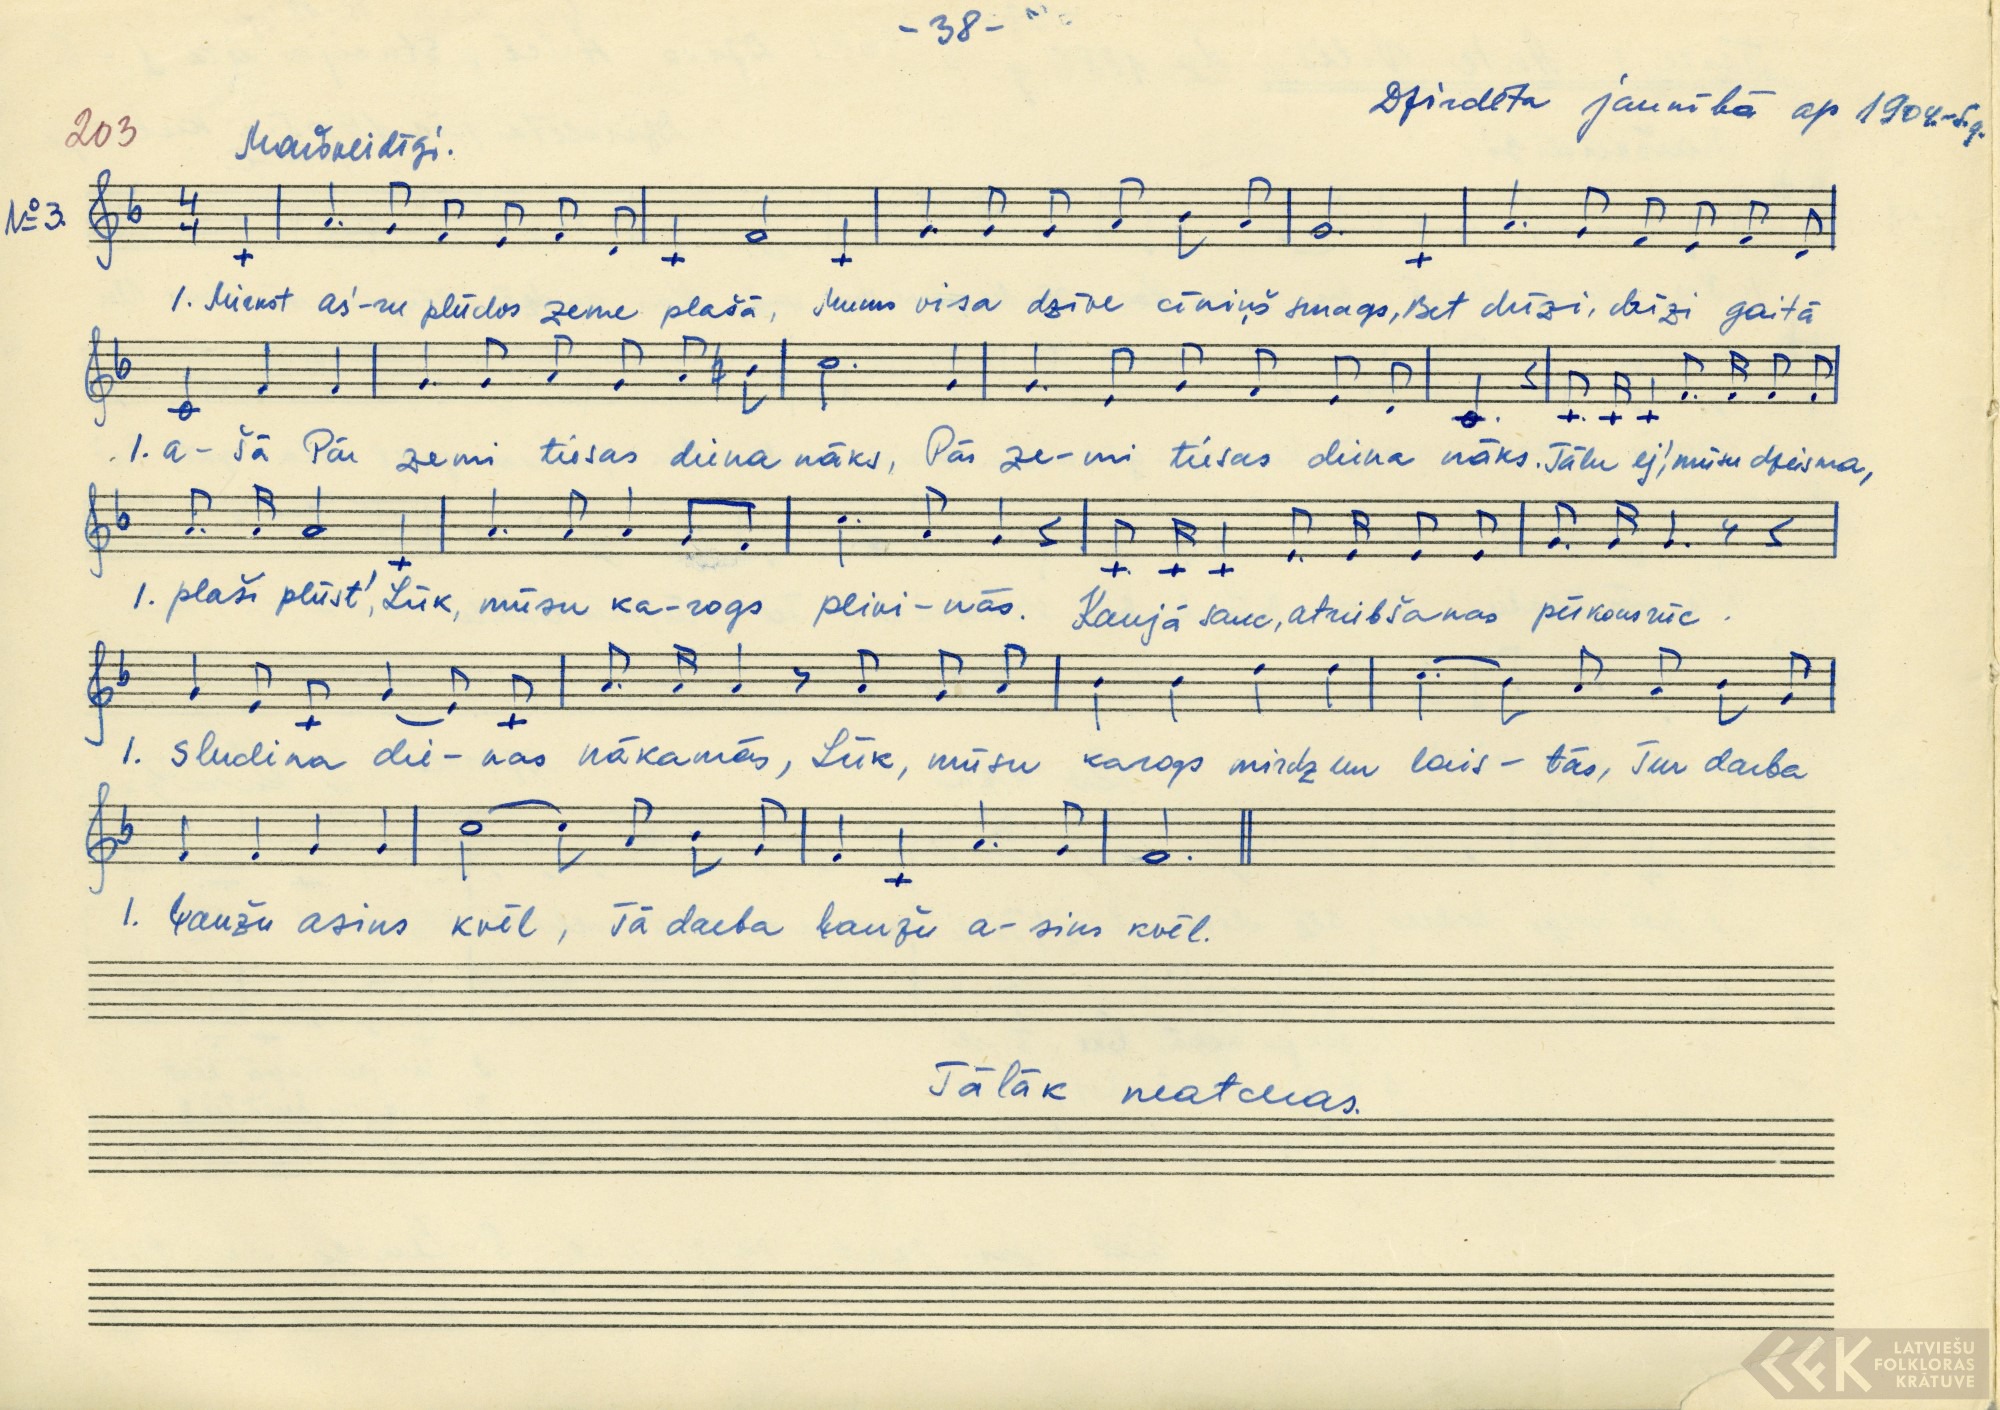 -38-
Dzirdēta jaunībā ap 1904.-5.g.
203
Maršveidīgi.
№3.
4
4
1. Mirkst as'-ru plūdos zeme plašā, Mums visa dzīve cīniņš smags, Bet drīzi, drīzi gaitā
1. a-šā Pār zemi tiesas diena nāks, Pār ze-mi tiesas diena nāks. Tālu ej', mūsu dziesma,
1. plaši plūst', Lūk, mūsu ka-rogs plivi-nās. Kaujā sauc, atriebšanas pērkons rūc.
1. Sludina die-nas nākamās, Lūk, mūsu karogs mirdzun lais-tās, Tur darba
1. ļaužu asins kvēl, Tā darba ļaužu a-sins kvēl.
Tālāk neatceras.
LATVIEŠU
FOLKLORAS
KRĀTUVE